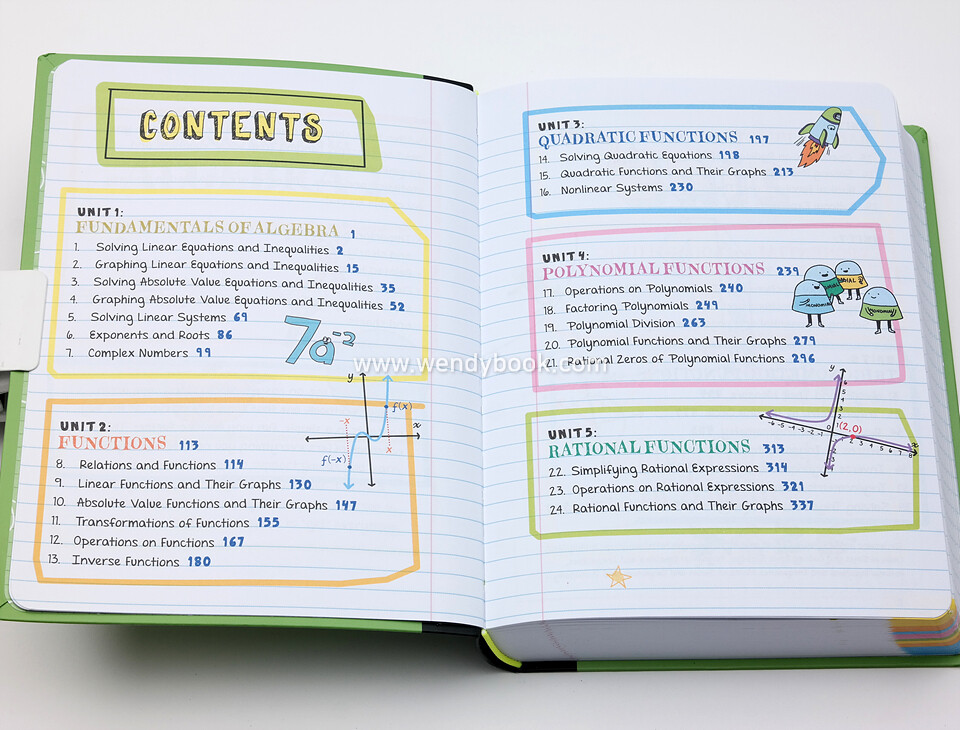 CONTENTS
UNIT 1:
FUNDAMENTALS OF ALGEBRA 1
1. Solving Linear Equations and Inequalities 2
2. Graphing Linear Equations and Inequalities 15
3. Solving Absolute Value Equations and Inequalities 35
4. Graphing Absolute Value Equations and Inequalities 52
5. Solving Linear Systems 69
6. Exponents and Roots 86
7. Complex Numbers 99
7a⁻²
www.wendybook.com
UNIT 2:
FUNCTIONS 113
8. Relations and Functions 114
9. Linear Functions and Their Graphs 130
10. Absolute Value Functions and Their Graphs 147
11. Transformations of Functions 155
12. Operations on Functions 167
13. Inverse Functions 180
y
f(x)
-x
x
x
f(-x)
UNIT 3:
QUADRATIC FUNCTIONS 197
14. Solving Quadratic Equations 198
15. Quadratic Functions and Their Graphs 213
16. Nonlinear Systems 230
UNIT 4:
POLYNOMIAL FUNCTIONS 239
17. Operations on Polynomials 240
18. Factoring Polynomials 249
19. Polynomial Division 263
20. Polynomial Functions and Their Graphs 279
21. Rational Zeros of Polynomial Functions 296
UNIT 5:
RATIONAL FUNCTIONS 313
22. Simplifying Rational Expressions 314
23. Operations on Rational Expressions 321
24. Rational Functions and Their Graphs 337
y
(2,0)
x